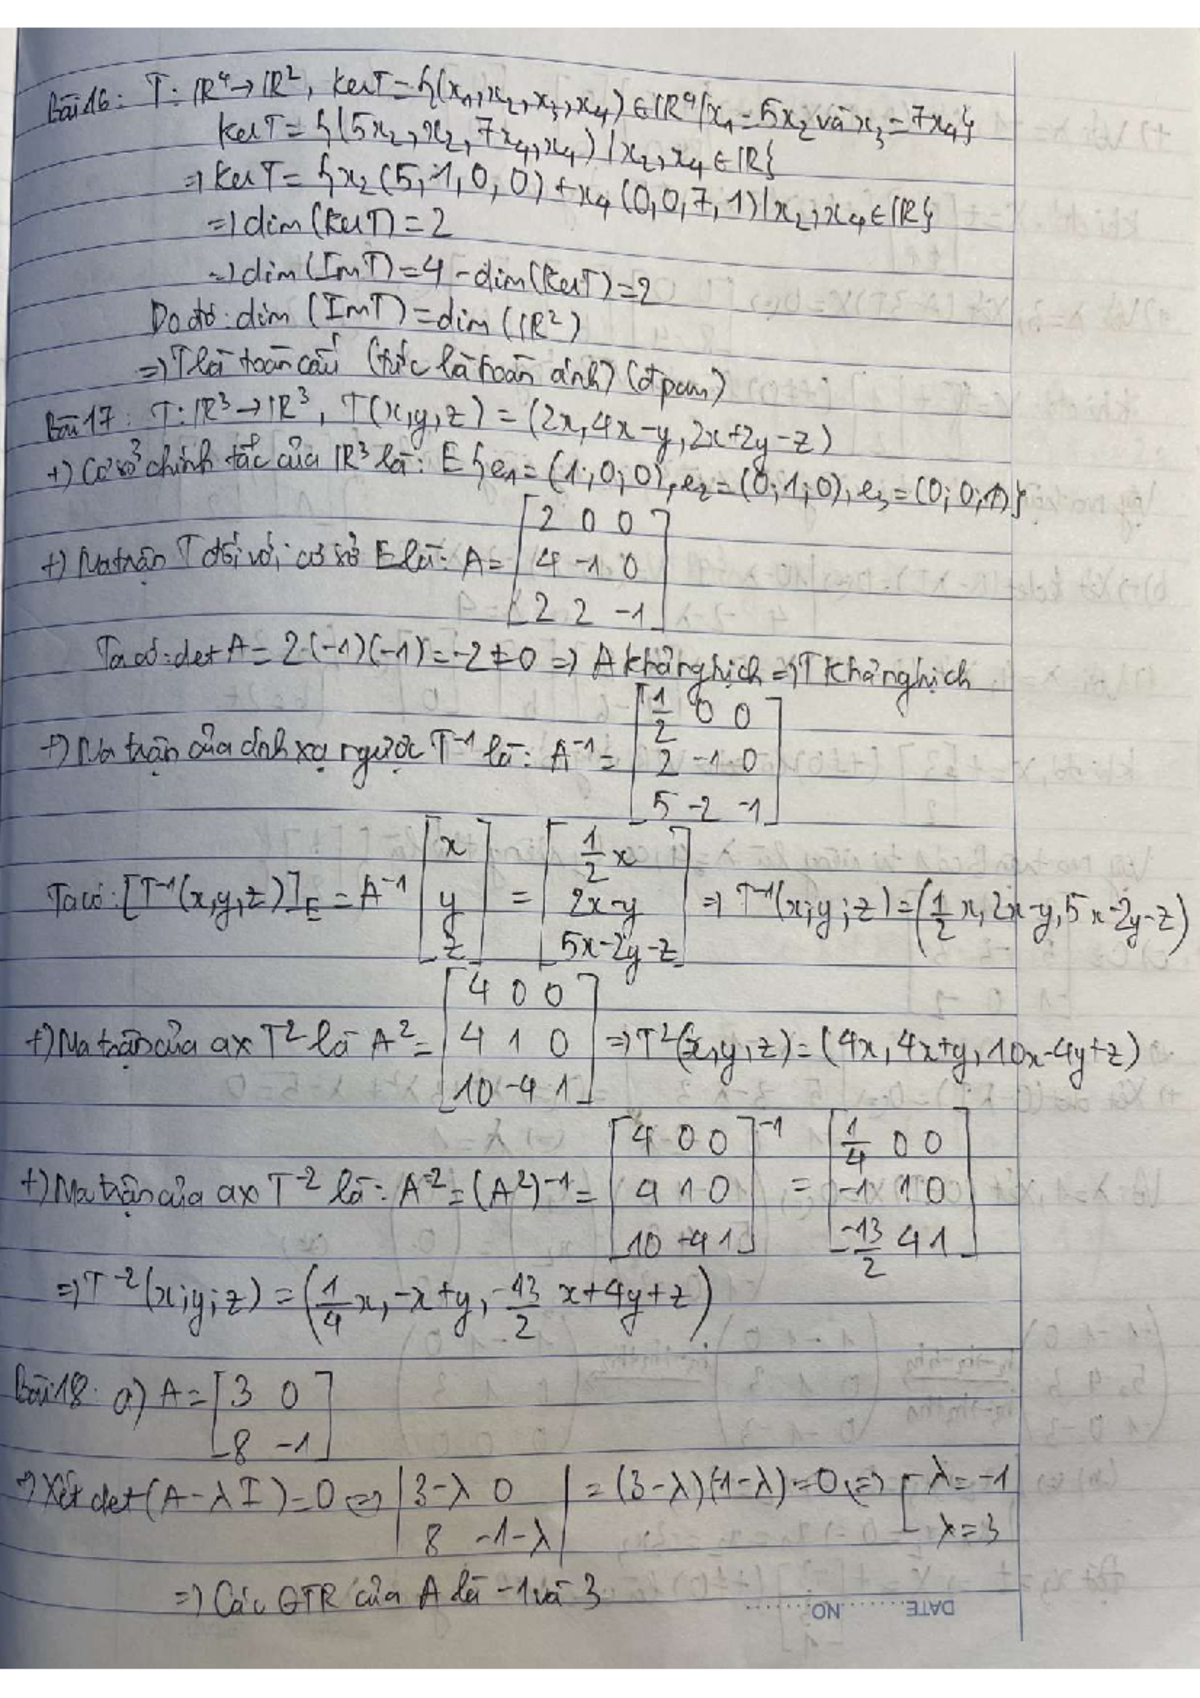 Bài 16: T: ℝ⁴→ℝ², KerT = {(x₁, x₂, x₃, x₄) ∈ ℝ⁴ | x₁ = 5x₂ và x₃ = 7x₄}
KerT = {(5x₂, x₂, 7x₄, x₄) | x₂, x₄ ∈ ℝ}
⇒ KerT = {x₂(5, 1, 0, 0) + x₄(0, 0, 7, 1) | x₂, x₄ ∈ ℝ}
⇒ dim(KerT) = 2
⇒ dim(ImT) = 4 - dim(KerT) = 2
Do đó: dim(ImT) = dim(ℝ²)
⇒ T là toàn cấu (tức là toàn ánh) (đpcm)
Bài 17: T: ℝ³→ℝ³, T(x,y,z) = (2x, 4x-y, 2x+2y-z)
+) Cơ sở chính tắc của ℝ³ là: E{e₁ = (1;0;0), e₂ = (0;1;0), e₃ = (0;0;1)}
+) Ma trận T đối với cơ sở E là: A = [2 0 0; 4 -1 0; 2 2 -1]
Ta có: det A = 2·(-1)(-1) = -2 ≠ 0 ⇒ A khả nghịch ⇒ T khả nghịch
+) Ma trận của ánh xạ ngược T⁻¹ là: A⁻¹ = [1/2 0 0; 2 -1 0; 5 -2 -1]
Ta có: [T⁻¹(x,y,z)]_E = A⁻¹ [x; y; z] = [1/2 x; 2x-y; 5x-2y-z] ⇒ T⁻¹(x;y;z) = (1/2 x, 2x-y, 5x-2y-z)
+) Ma trận của ax T² là A² = [4 0 0; 4 1 0; 10 -4 1] ⇒ T²(x,y,z) = (4x, 4x+y, 10x-4y+z)
+) Ma trận của ax T⁻² là: A⁻² = (A²)⁻¹ = [4 0 0; 4 1 0; 10 -4 1]⁻¹ = [1/4 0 0; -1 1 0; -13/2 4 1]
⇒ T⁻²(x;y;z) = (1/4 x, -x+y, -13/2 x+4y+z)
Bài 18: a) A = [3 0; 8 -1]
⇒ Xét det(A-λI) = 0 ⇔ |3-λ 0; 8 -1-λ| = (3-λ)(-1-λ) = 0 ⇔ [λ = -1; λ = 3
⇒ Các GTR của A là -1 và 3
DATE NO